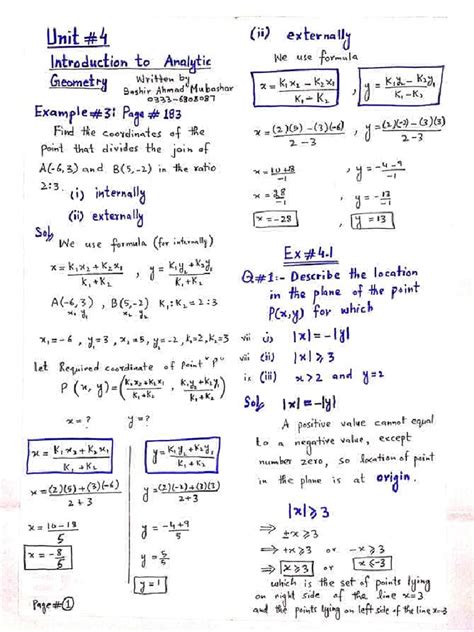 Unit #4
Introduction to Analytic
Geometry
Written by
Bashir Ahmad Mubashar
0333-6308087
Example #3: Page # 183
Find the coordinates of the
point that divides the join of
A(-6,3) and B(5,-2) in the ratio
2:3. (i) internally
(ii) externally
Sol, We use formula (for internally)
x = K₁x₂+K₂x₁ / K₁+K₂ , y = K₁y₂+K₂y₁ / K₁+K₂
A(-6,3) , B(5,-2) K₁:K₂ = 2:3
x₁ y₁ x₂ y₂
x₁=-6 , y₁=3 , x₂=5, y₂=-2, K₁=2, K₂=3
let Required coordinate of Point "P"
P(x,y) = (K₁x₂+K₂x₁ / K₁+K₂ , K₁y₂+K₂y₁ / K₁+K₂)
x = ? y = ?
x = K₁x₂+K₂x₁ / K₁+K₂
x = (2)(5)+(3)(-6) / 2+3
x = 10-18 / 5
x = -8/5
y = K₁y₂+K₂y₁ / K₁+K₂
y = (2)(-2)+(3)(3) / 2+3
y = -4+9 / 5
y = 5/5
y = 1
Page #1
(ii) externally
We use formula
x = K₁x₂-K₂x₁ / K₁-K₂ , y = K₁y₂-K₂y₁ / K₁-K₂
x = (2)(5)-(3)(-6) / 2-3 , y = (2)(-2)-(3)(3) / 2-3
x = 10+18 / -1 , y = -4-9 / -1
x = 28 / -1 , y = -13 / -1
x = -28 , y = 13
Ex #4.1
Q#1:- Describe the location
in the plane of the point
P(x,y) for which
vii (i) |x| = -|y|
viii (ii) |x| ⩾ 3
ix (iii) x>2 and y=2
Sol, |x| = -|y|
A positive value cannot equal
to a negative value, except
number zero, so location of point
in the plane is at origin.
|x| ⩾ 3
⇒ ±x ⩾ 3
⇒ +x ⩾ 3 or -x ⩾ 3
⇒ x ⩾ 3 or x ⩽ -3
which is the set of points lying
on right side of the line x=3
and the points lying on left side of the line x=-3